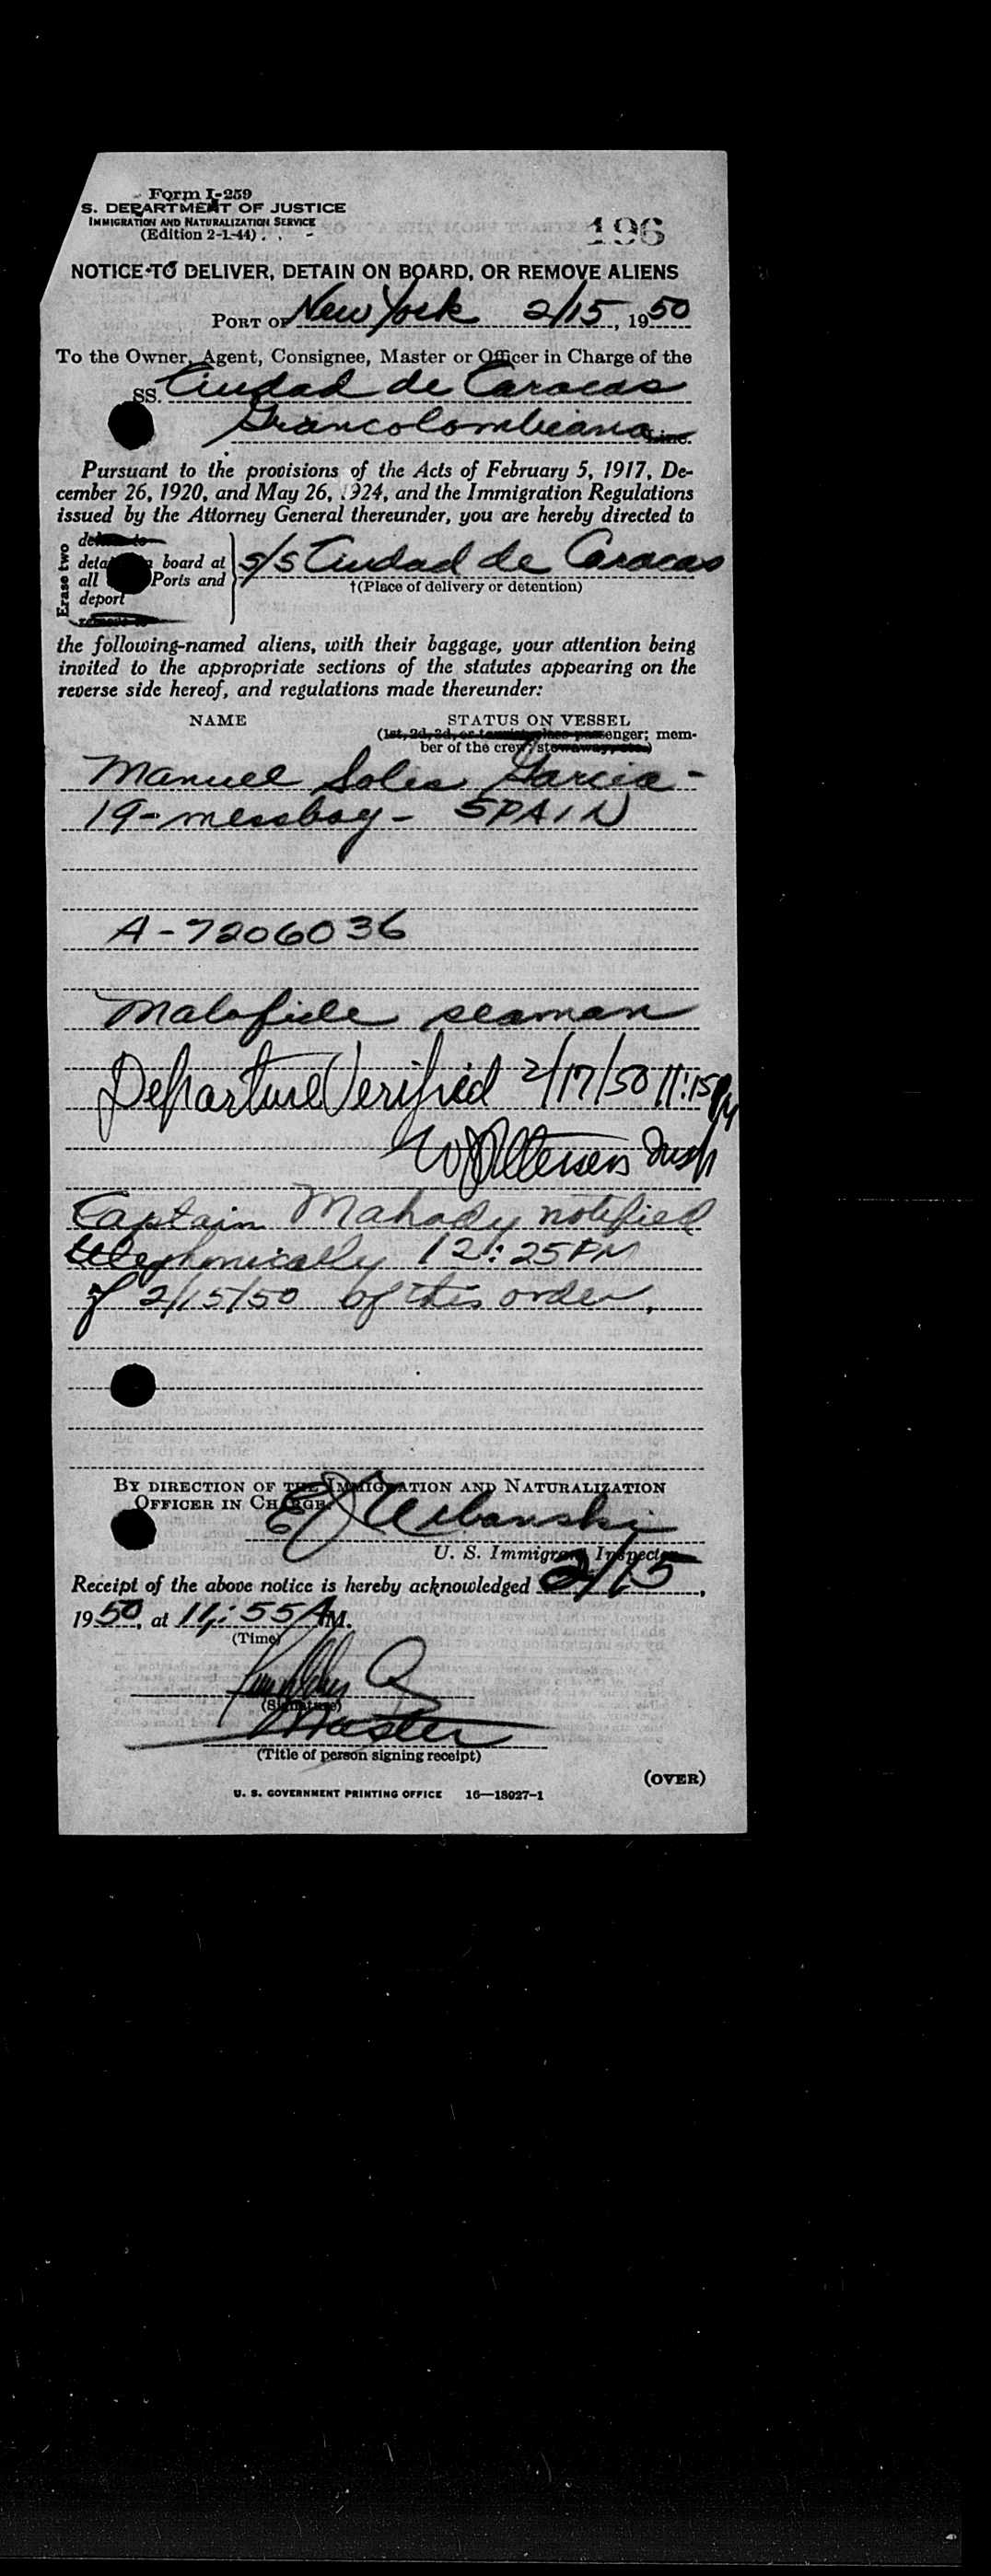 Form I-259
S. DEPARTMENT OF JUSTICE
IMMIGRATION AND NATURALIZATION SERVICE
(Edition 2-1-44)
196
NOTICE TO DELIVER, DETAIN ON BOARD, OR REMOVE ALIENS
PORT OF New York 2/15, 1950
To the Owner, Agent, Consignee, Master or Officer in Charge of the
SS. Ciudad de Caracas
Grancolombiana Line.
Pursuant to the provisions of the Acts of February 5, 1917, De-
cember 26, 1920, and May 26, 1924, and the Immigration Regulations
issued by the Attorney General thereunder, you are hereby directed to
Erase two
board at
all Ports and
deport
s/s Ciudad de Caracas
†(Place of delivery or detention)
the following-named aliens, with their baggage, your attention being
invited to the appropriate sections of the statutes appearing on the
reverse side hereof, and regulations made thereunder:
NAME STATUS ON VESSEL
(1st, 2d, 3d, or passenger; mem-
ber of the crew;
Manuel Soles Garcia -
19 - messboy - SPAIN
A-7206036
Malafide seaman
Departure Verified 2/17/50 11:15 PM
Captain Mahady notified
telephonically 12:25 PM
2/15/50 of this order.
BY DIRECTION OF THE IMMIGRATION AND NATURALIZATION
OFFICER IN CHARGE:
E J Urbanski
U. S. Immigrant Inspector
Receipt of the above notice is hereby acknowledged 2/15,
1950, at 11:55 A M.
(Time)
(Signature)
Master
(Title of person signing receipt)
(OVER)
U. S. GOVERNMENT PRINTING OFFICE 16—18027-1